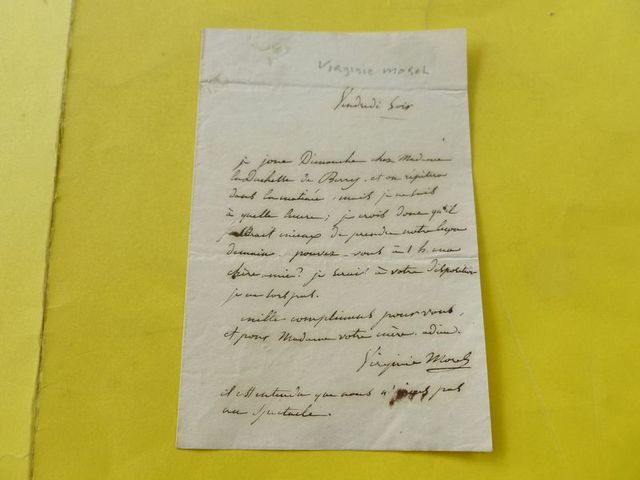 Virginie Morel
Vendredi Soir
je joue Dimanche chez Madame
la Duchesse de Berry, et on répétera
dans la matinée, mais je ne sais
à quelle heure; je crois donc qu'il
vaut mieux de prendre notre leçon
demain. pouvez-vous à 1 h. ma
chère amie? je serais à votre disposition
je ne sors pas.
mille complimens pour vous,
et pour Madame votre mère. adieu.
Virginie Morel
il est entendu que nous n' pas
au Spectacle.